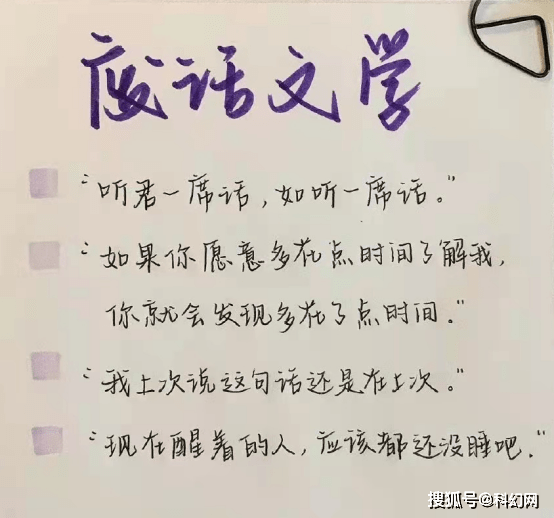 废话文学
"听君一席话，如听一席话。"
"如果你愿意多花点时间了解我，
你就会发现多花了点时间."
"我上次说这句话还是在上次。"
"现在醒着的人，应该都还没睡吧."
搜狐号@科幻网